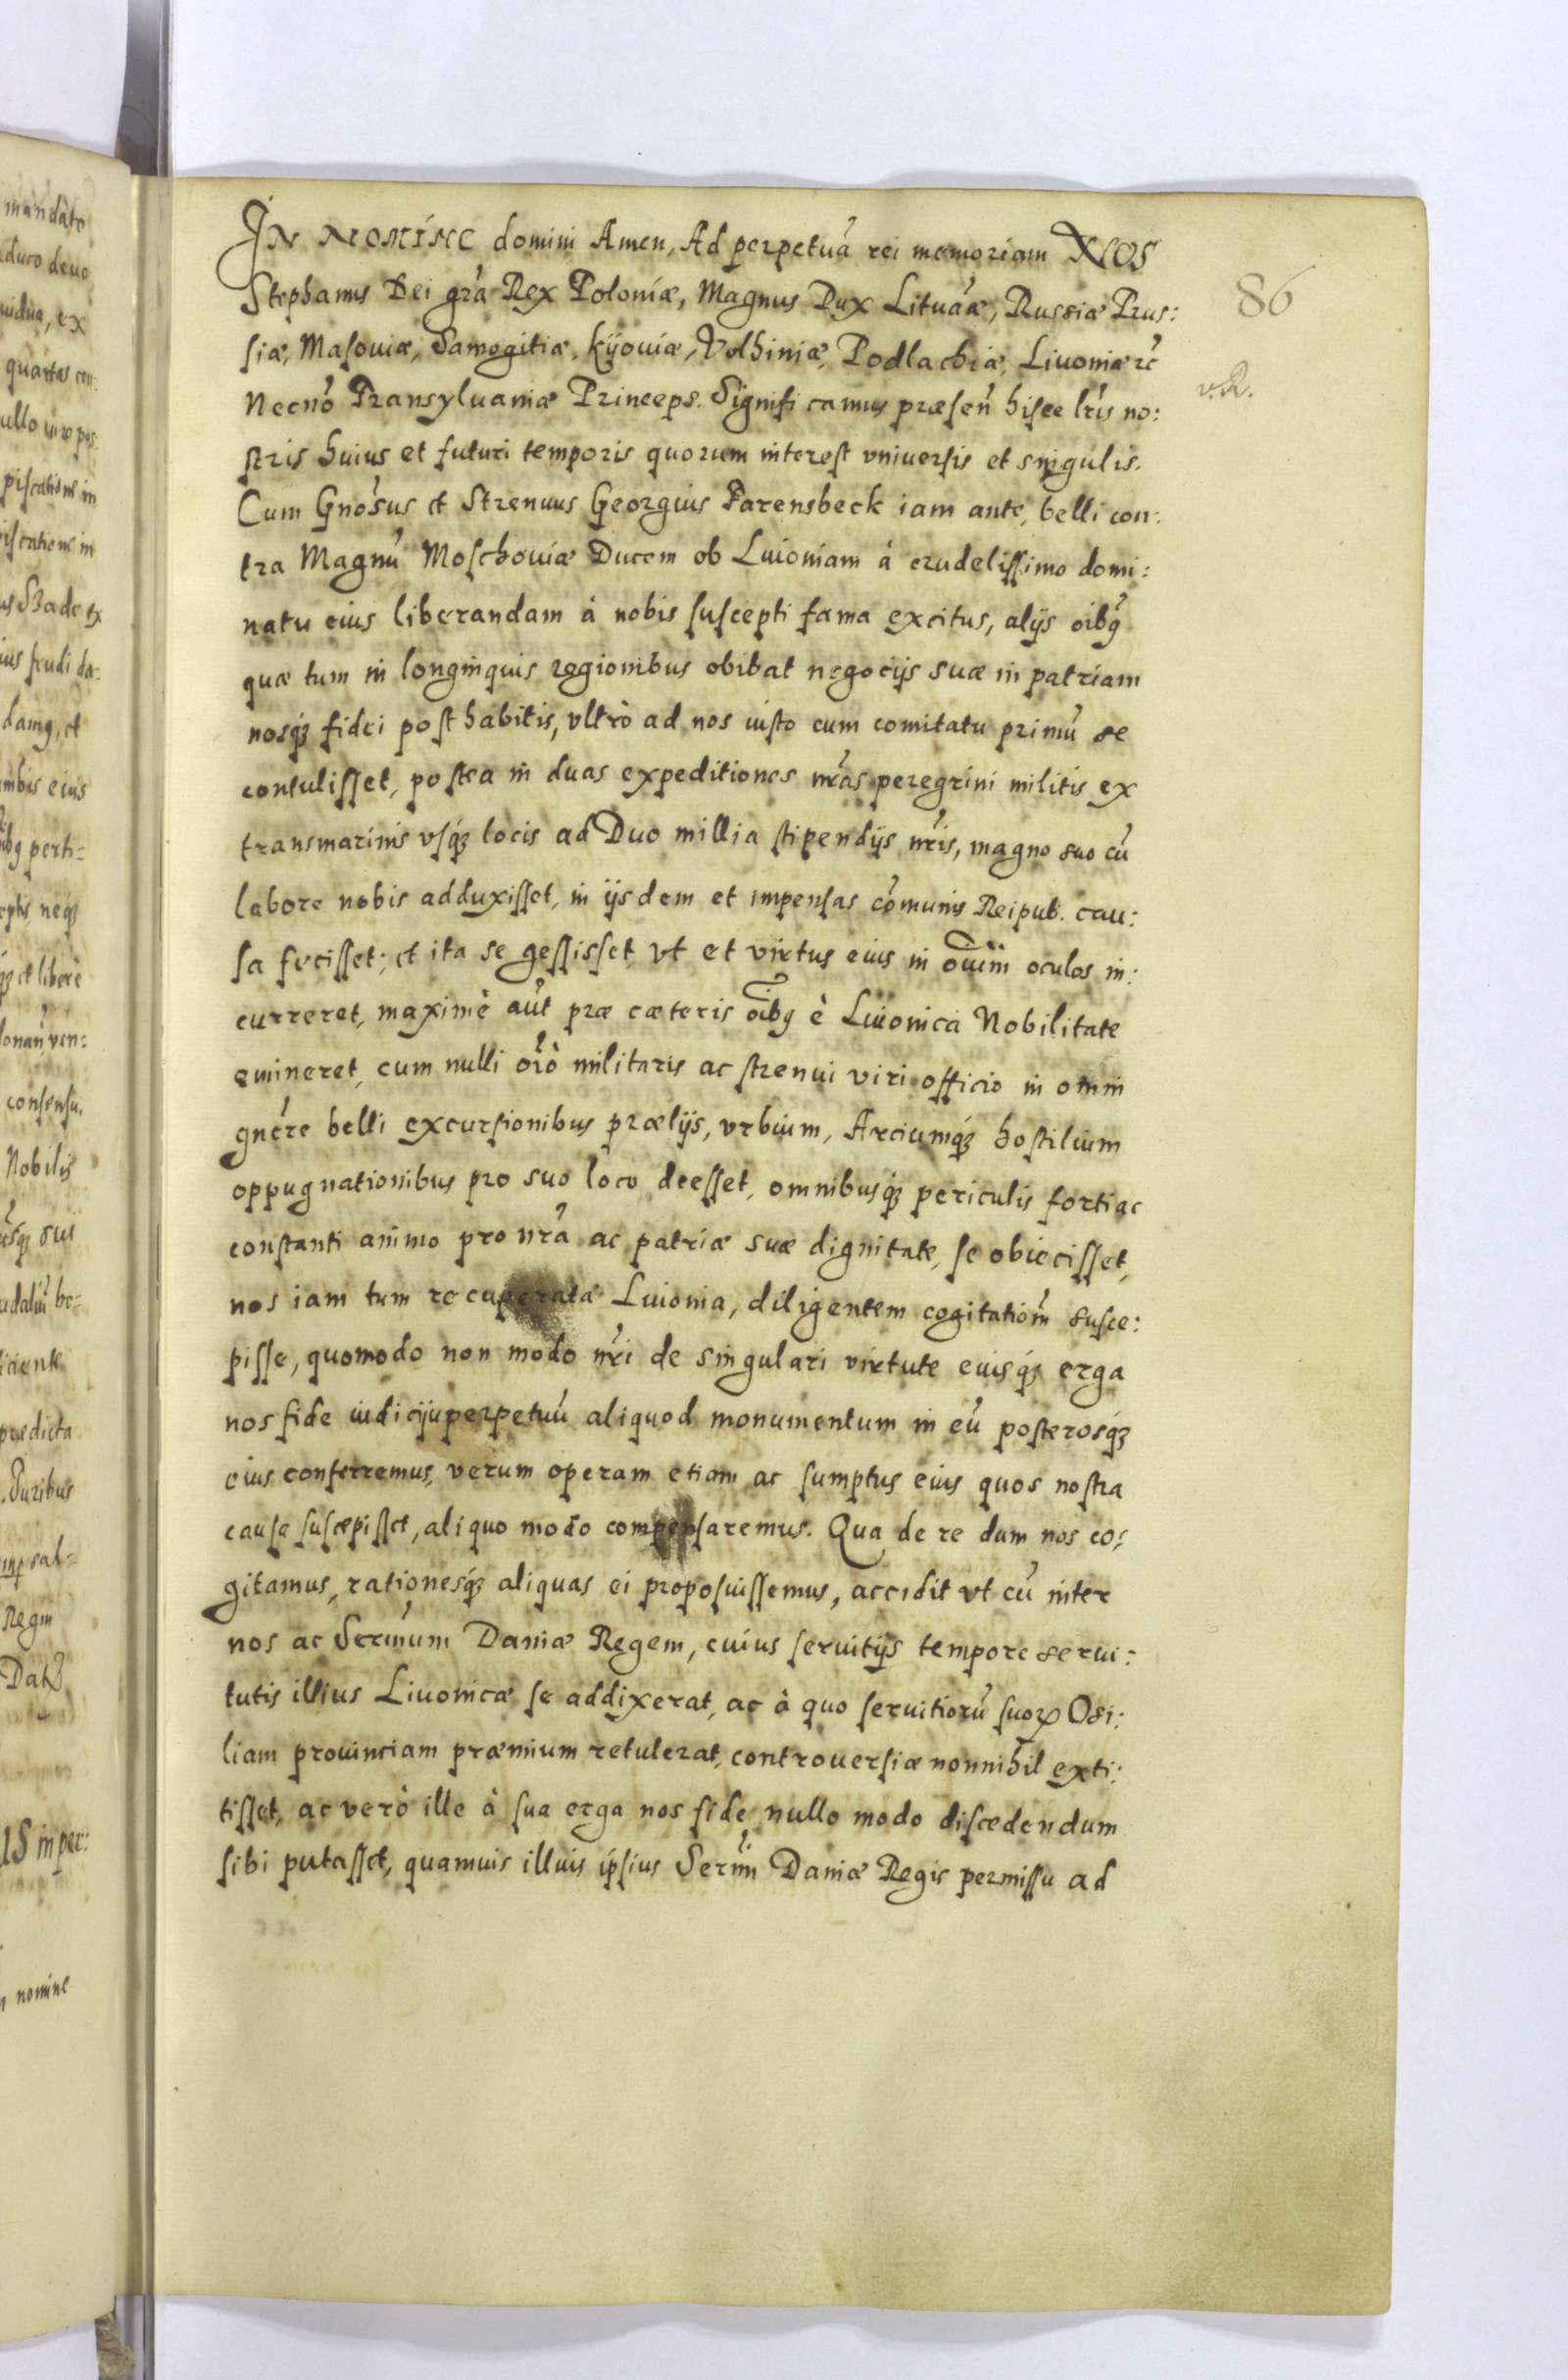 IN NOMINE domini Amen, Ad perpetuã rei memoriam NOS
Stephanus Dei grã Rex Poloniæ, Magnus Dux Lituãæ, Russiæ Prus:
siæ, Masouiæ, Samogitiæ, Kijouiæ, Volhiniæ, Podlachiæ, Liuoniæ &c
Necnõ Transyluaniæ Princeps. Significamus præsen̄ hisce lr̃is no:
stris huius et futuri temporis quorum interest vniuersis et singulis.
Cum Gnõsus et Strenuus Georgius Farensbeck iam ante, belli con:
tra Magnũ Moschouiæ Ducem ob Liuoniam á crudelissimo domi:
natu eius liberandam à nobis suscepti fama excitus, alijs oĩbꝰ
quæ tum in longinquis regionibus obibat negocijs suæ in patriam
nosqꝫ fidei posthabitis, vltrò ad nos iusto cum comitatu primũ se
contulisset, postea in duas expeditiones nr̃as peregrini militis ex
transmarinis vsqꝫ locis ad Duo millia stipendijs nr̃is, magno suo cũ
labore nobis adduxisset, in ijsdem et impensas cõmunis Reipub. cau:
sa fecisset; et ita se gessisset vt et virtus eius in oium̃ oculos in:
curreret, maximè aũt præ cæteris oĩbꝰ è Liuonica Nobilitate
emineret, cum nulli oĩo militaris ac strenui viri officio in omni
gnẽre belli excursionibus prælijs, vrbium, Arciumqꝫ hostilium
oppugnationibus pro suo loco deesset, omnibusqꝫ periculis forti ac
constanti animo pro nr̃a ac patriæ suæ dignitate, se obiecisset,
nos iam tum recuperata Liuonia, diligentem cogitatiom̃ susce:
pisse, quomodo non modo nr̃i de singulari virtute eiusqꝫ erga
nos fide iudicij perpetuũ aliquod monumentum in eũ posterosqꝫ
eius conferremus, verum operam etiam ac sumptus eius quos nostra
causa suscepisset, aliquo modo compensaremus. Qua de re dum nos co:
gitamus, rationesqꝫ aliquas ei proposuissemus, accidit vt cũ inter
nos ac Serm̃um Daniæ Regem, cuius seruitijs tempore serui:
tutis illius Liuonicæ se addixerat, ac à quo seruitiorũ suoꝝ Osi:
liam prouinciam præmium retulerat, controuersiæ nonnihil exti:
tisset, ac verò ille à sua erga nos fide nullo modo discedendum
sibi putasset, quamuis illius ipsius Serm̃i Daniæ Regis permissu ad
86
v.R.